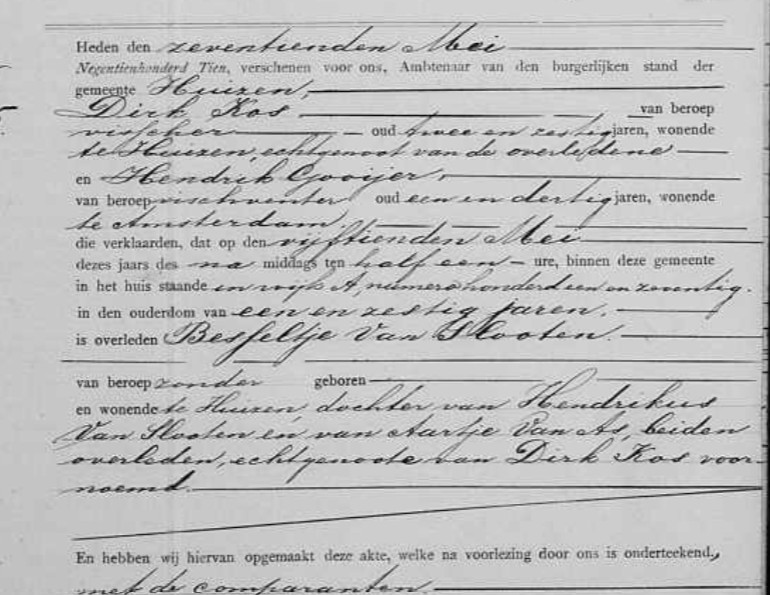 Heden den zeventienden Mei
Negentienhonderd Tien, verschenen voor ons, Ambtenaar van den burgerlijken stand der
gemeente Huizen,
Dirk Kos van beroep
visscher oud twee en zestig jaren, wonende
te Huizen, echtgenoot van de overledene
en Hendrik Gooijer,
van beroep vischventer oud een en dertig jaren, wonende
te Amsterdam,
die verklaarden, dat op den vijftienden Mei
dezes jaars des na middags ten half een ure, binnen deze gemeente
in het huis staande in wijk A, numero honderd een en zeventig.
in den ouderdom van een en zestig jaren,
is overleden Besseltje Van Slooten.
van beroep zonder geboren
en wonende te Huizen, dochter van Hendrikus
Van Slooten en van Aartje Van As, beiden
overleden, echtgenoote van Dirk Kos voor-
noemd.
En hebben wij hiervan opgemaakt deze akte, welke na voorlezing door ons is onderteekend,
met de comparanten.